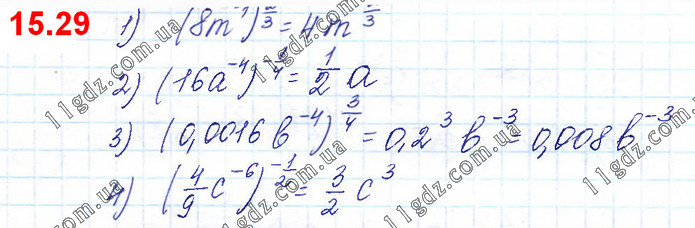 15.29
1) (8m⁻¹)^(2/3) = 4m^(-2/3)
2) (16a⁻⁴)^(-1/4) = 1/2 a
3) (0,0016b⁻⁴)^(3/4) = 0,2³ b⁻³ = 0,008b⁻³
4) (4/9 c⁻⁶)^(-1/2) = 3/2 c³
11gdz.com.ua
11gdz.com.ua
11gdz.com.ua
11gdz.com.ua
11gdz.com.ua